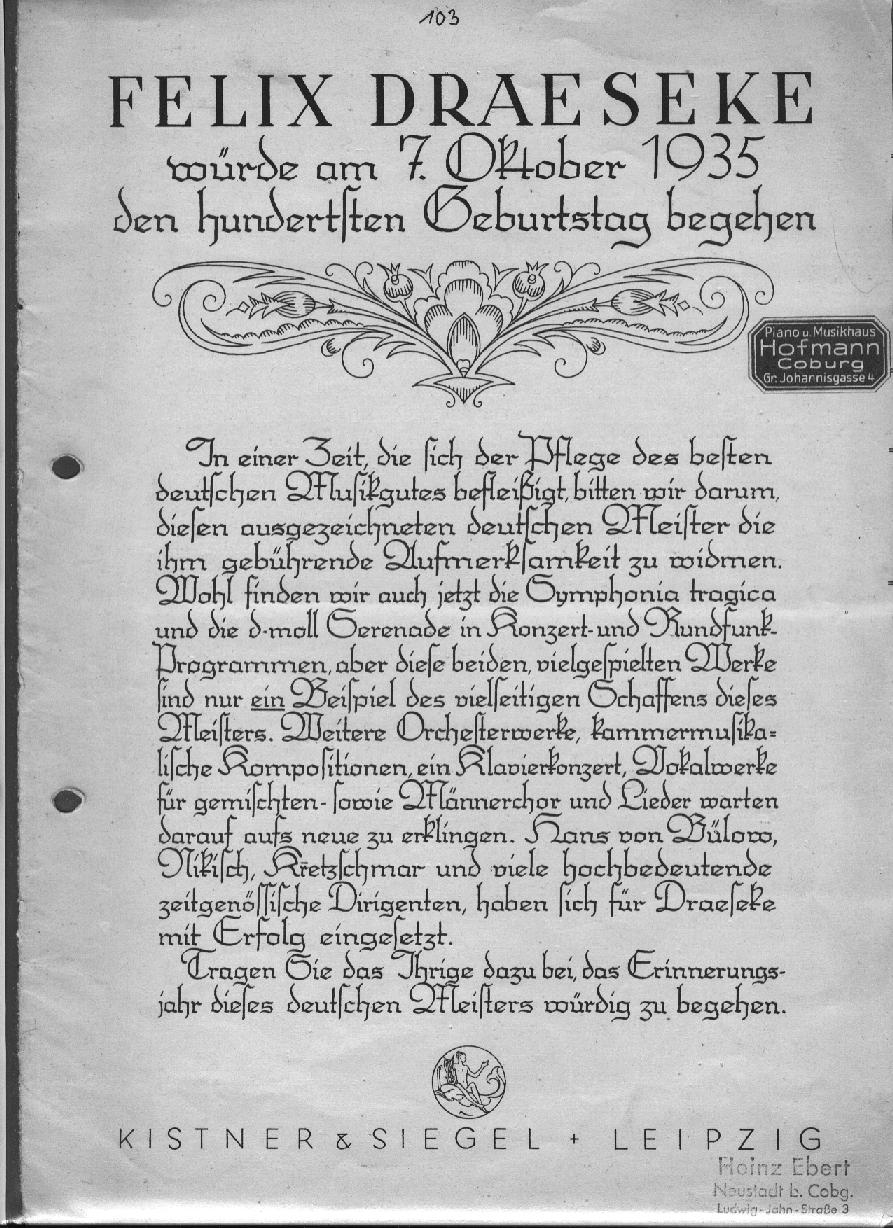 103
FELIX DRAESEKE
würde am 7. Oktober 1935
den hundertſten Geburtstag begehen
Piano u. Musikhaus
Hofmann
Coburg
Gr. Johannisgasse 4
In einer Zeit, die ſich der Pflege des beſten
deutſchen Muſikgutes befleißigt, bitten wir darum,
dieſen ausgezeichneten deutſchen Meiſter die
ihm gebührende Aufmerkſamkeit zu widmen.
Wohl finden wir auch jetzt die Symphonia tragica
und die d-moll Serenade in Konzert- und Rundfunk-
Programmen, aber dieſe beiden, vielgeſpielten Werke
ſind nur ein Beiſpiel des vielſeitigen Schaffens dieſes
Meiſters. Weitere Orcheſterwerke, kammermuſika=
liſche Kompoſitionen, ein Klavierkonzert, Vokalwerke
für gemiſchten- ſowie Männerchor und Lieder warten
darauf aufs neue zu erklingen. Hans von Bülow,
Nikiſch, Kretzschmar und viele hochbedeutende
zeitgenöſſiſche Dirigenten, haben ſich für Draeſeke
mit Erfolg eingeſetzt.
Tragen Sie das Ihrige dazu bei, das Erinnerungs-
jahr dieſes deutſchen Meiſters würdig zu begehen.
KISTNER & SIEGEL + LEIPZIG
Heinz Ebert
Neustadt b. Cobg.
Ludwig-Jahn-Straße 3